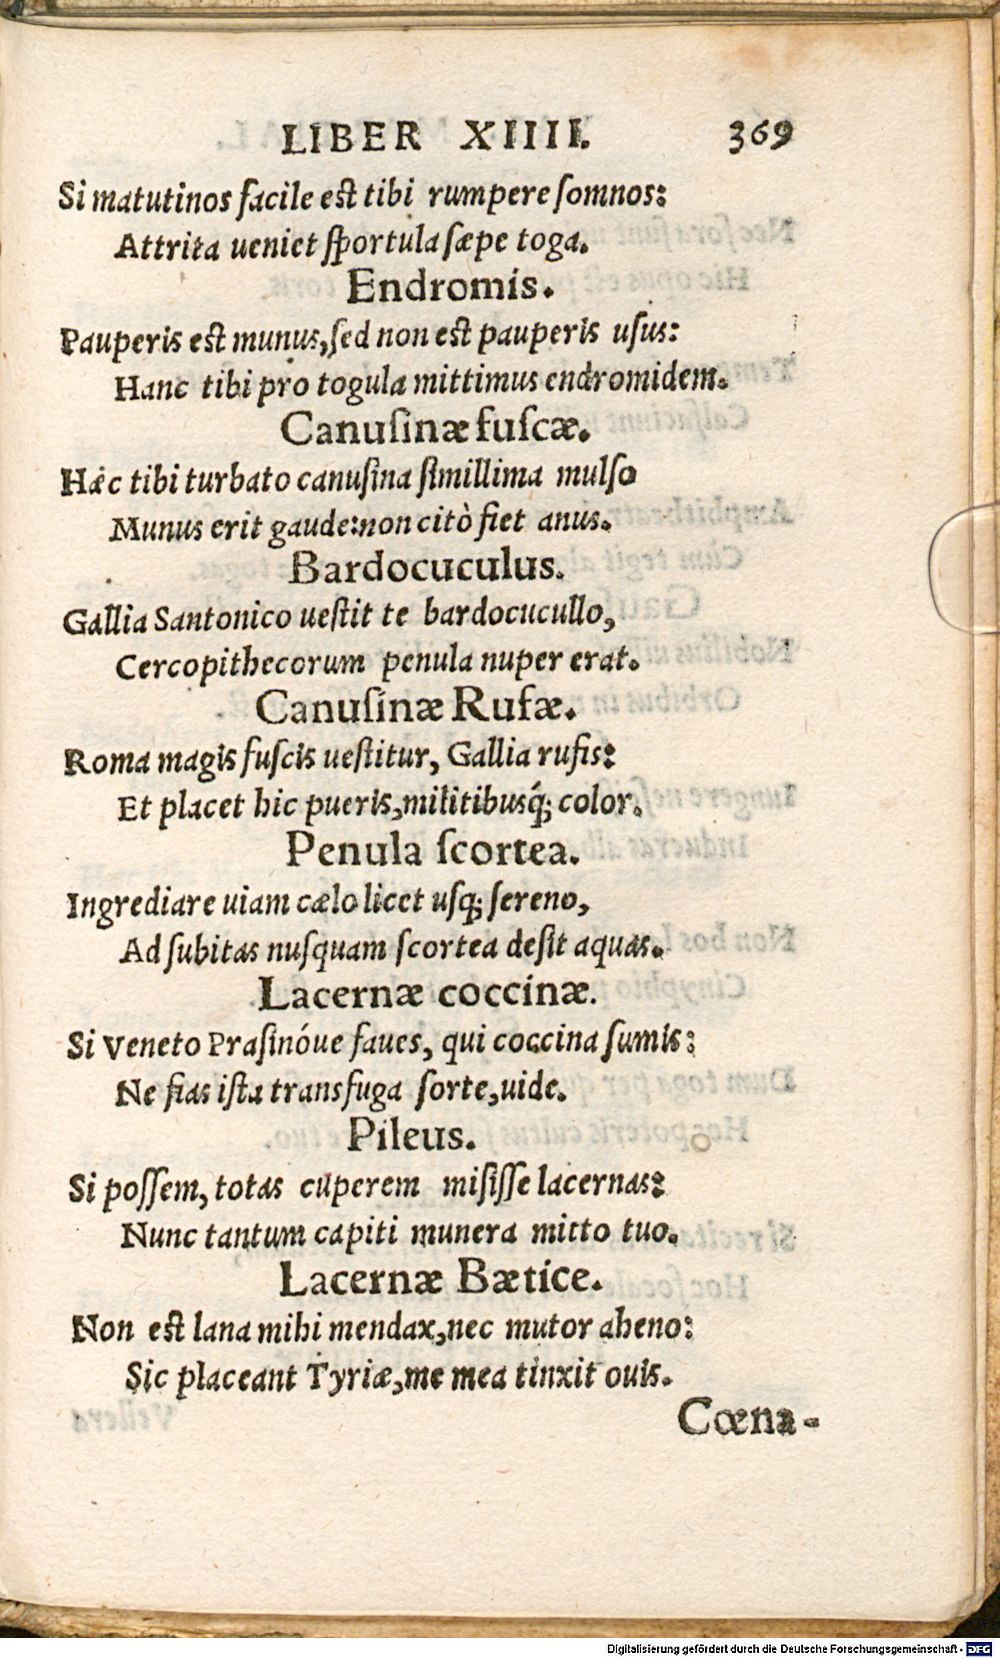 LIBER XIIII. 369
Si matutinos facile est tibi rumpere ſomnos:
Attrita ueniet ſportula ſæpe toga.
Endromis.
Pauperis est munus, ſed non est pauperis uſus:
Hanc tibi pro togula mittimus endromidem.
Canuſinæ fuſcæ.
Hæc tibi turbato canuſina ſimillima mulſo
Munus erit gaude: non citò fiet anus.
Bardocuculus.
Gallia Santonico ueſtit te bardocucullo,
Cercopithecorum penula nuper erat.
Canuſinæ Rufæ.
Roma magis fuſcis ueſtitur, Gallia rufis:
Et placet hic pueris, militibusq́; color.
Penula ſcortea.
Ingrediare uiam cælo licet uſq; ſereno,
Ad ſubitas nuſquam ſcortea deſit aquas.
Lacernæ coccinæ.
Si Veneto Praſinóue faues, qui coccina ſumis:
Ne fias iſta transfuga ſorte, uide.
Pileus.
Si poſſem, totas cuperem miſiſſe lacernas:
Nunc tantum capiti munera mitto tuo.
Lacernæ Bætice.
Non est lana mihi mendax, nec mutor aheno:
Sic placeant Tyriæ, me mea tinxit ouis.
Cœna-
Digitalisierung gefördert durch die Deutsche Forschungsgemeinschaft - DFG